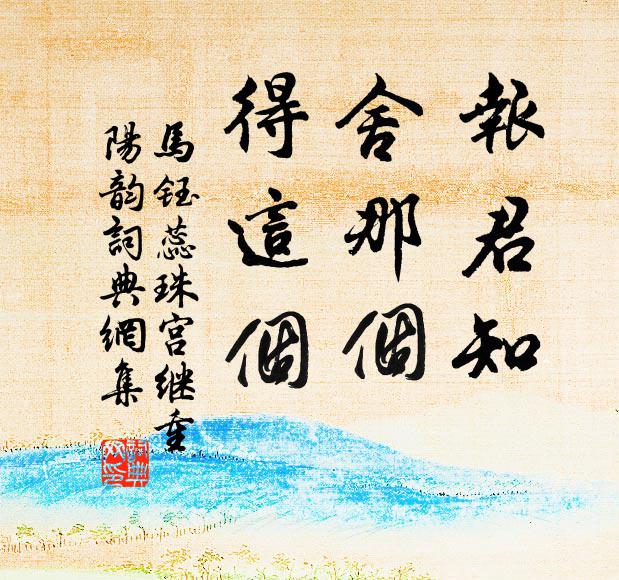 報君知
舍那個
得這個
馬鈺蕊珠宮继重
陽韵詞典網集